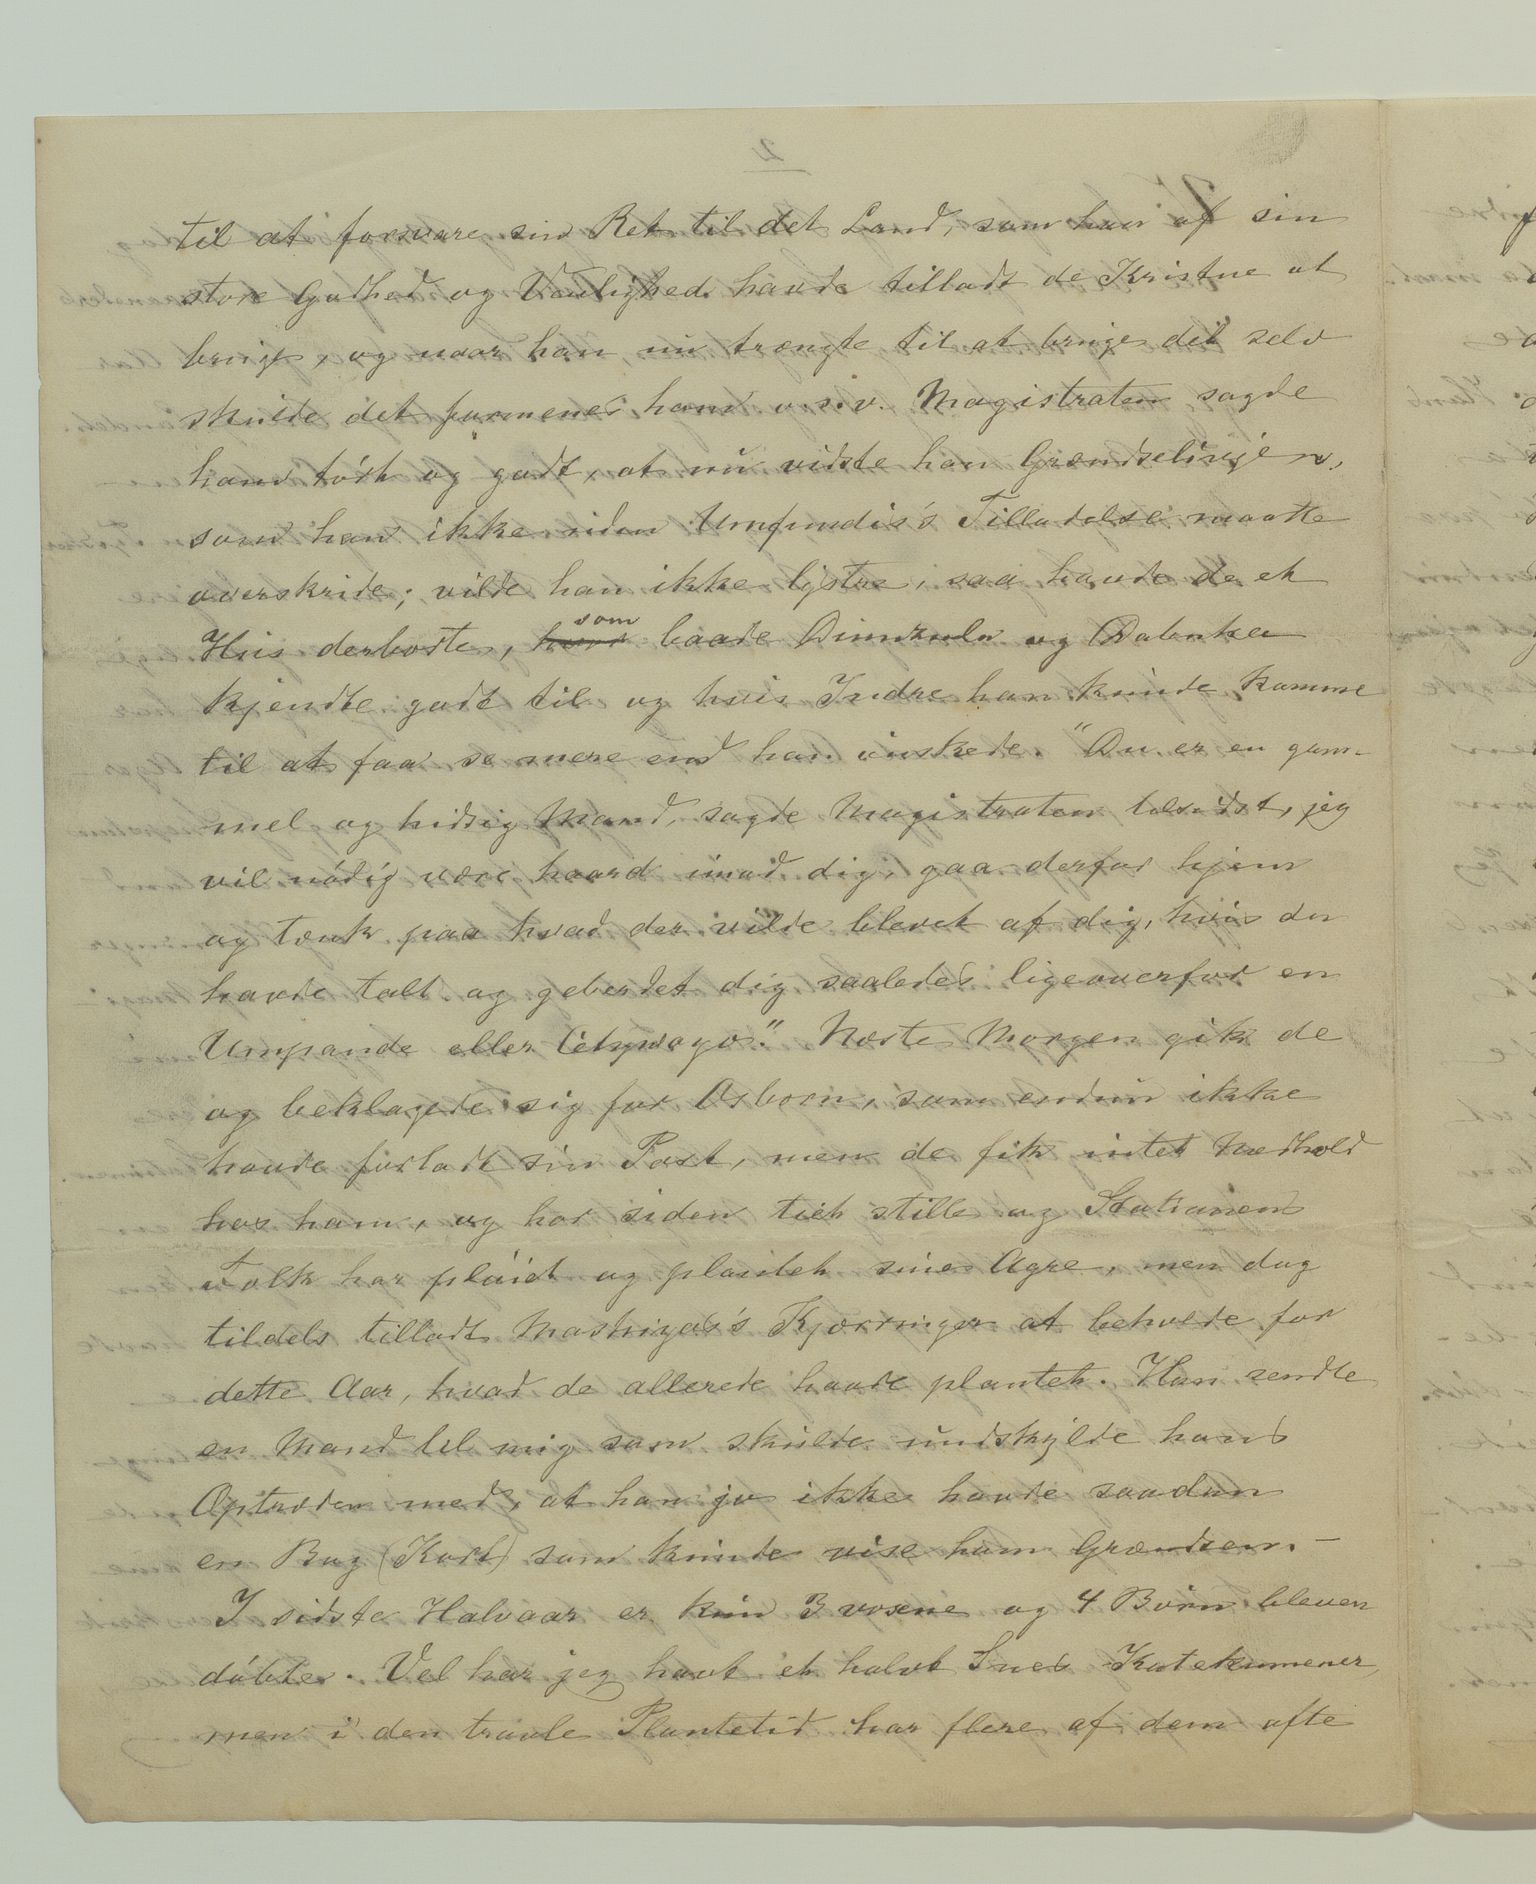 til at forsvare sin Ret til det Land, som han af sin
store Godhed og Venlighed havde tilladt de Kristne at
bruge, og naar han nu trængte til at bruge det selv
skulde det formenes ham o.s.v. Magistraten sagde
ham tørt og godt, at nu vidste han Grændselinjen,
som han ikke uden Umfundis's Tilladelse maatte
overskride; vilde han ikke lystre, saa havde de et
Hus derborte, som baade Dinuzulu og Dabuka
kjendte godt til og hvis Indre han kunde komme
til at faa se mere end han ønskede. "Du er en gam-
mel og hidsig Mand, sagde Magistraten tilsidst, jeg
vil nødig være haard imod dig, gaa derfor hjem
og tænk paa hvad der vilde blevet af dig, hvis du
havde talt og geberdet dig saaledes ligeoverfor en
Umpande eller Cetywayo." Næste Morgen gik de
og beklagede sig for Osborn, som endnu ikke
havde forladt sin Post, men de fik intet Medhold
hos ham, og har siden tiet stille og Stationens
Folk har pløiet og plantet sine Agre, men dog
tildels tilladt Mashiza's Kjærringer at beholde for
dette Aar, hvad de allerede havde plantet. Han sendte
en Mand til mig som skulde undskylde hans
Optræden med, at han jo ikke havde saadan
en Bog (Kort) som kunde vise ham Grændsen. –
I sidste Halvaar er kun 3 voxne og 4 Børn bleven
døbte. Vel har jeg havt et halvt Snes Katekumener,
men i den travle Plantetid har flere af dem ofte